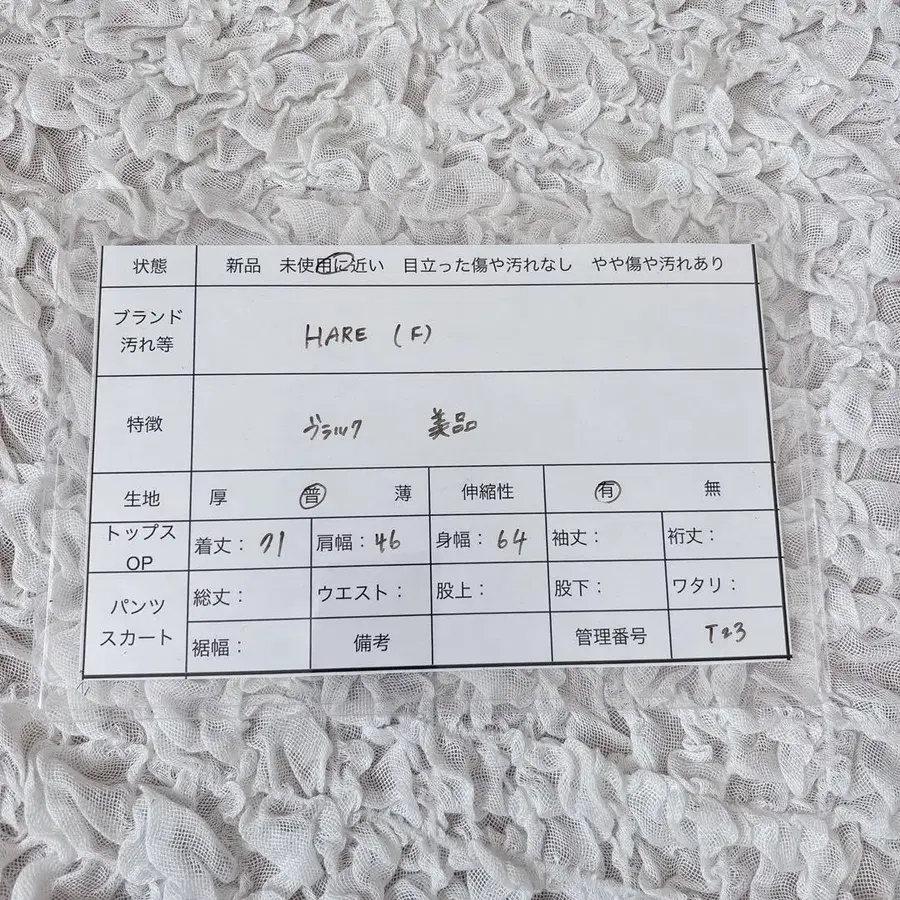 状態 新品 未使用に近い 目立った傷や汚れなし やや傷や汚れあり
ブランド
汚れ等
HARE (F)
特徴 ブラック 美品
生地 厚 普 薄 伸縮性 有 無
トップス
OP
着丈：71 肩幅：46 身幅：64 袖丈： 裄丈：
パンツ
スカート
総丈： ウエスト： 股上： 股下： ワタリ：
裾幅： 備考 管理番号 T23